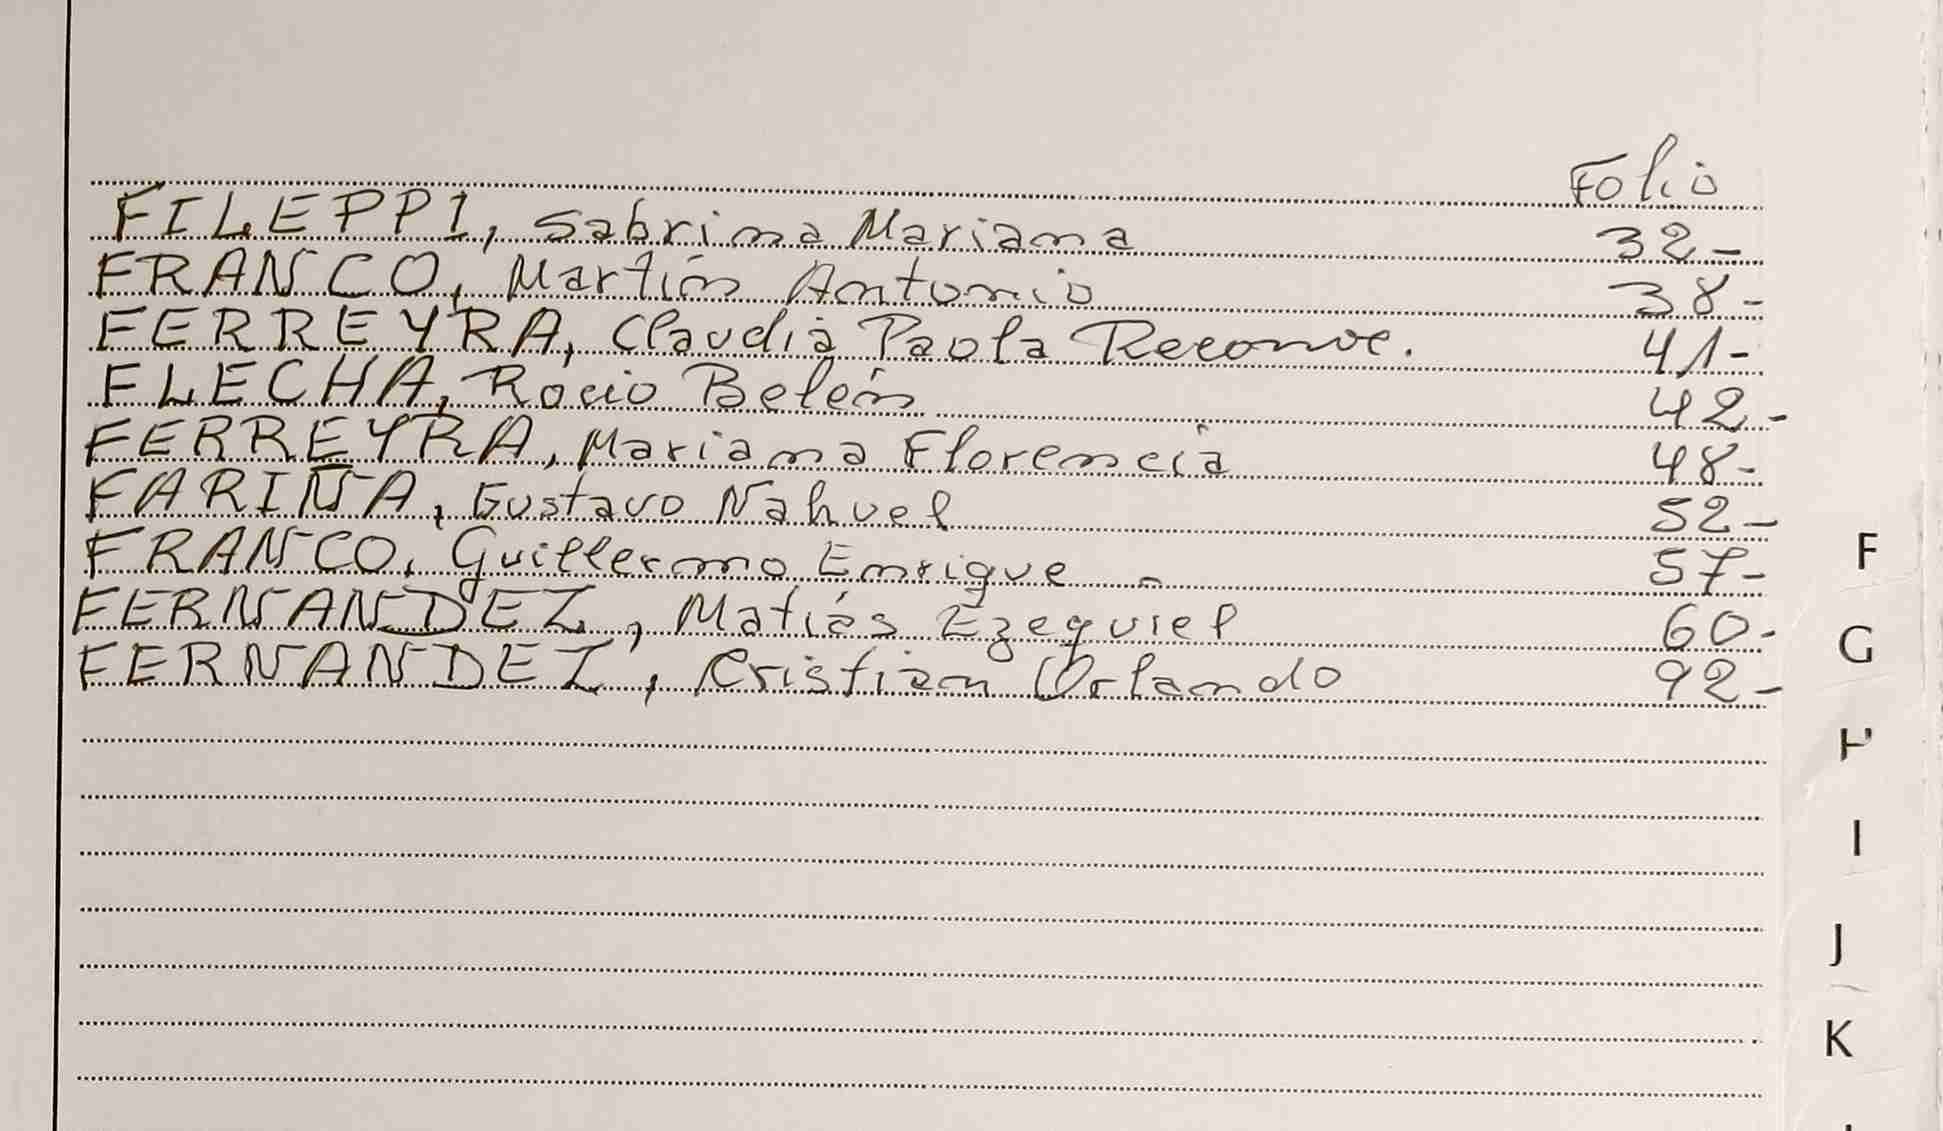 Folio
FILEPPI, Sabrina Mariana 32-
FRANCO, Martín Antonio 38-
FERREYRA, Claudia Paola 41-
FLECHA, Rocio Belén 42-
FERREYRA, Mariana Florencia 48-
FARIÑA, Gustavo Nahuel 52-
FRANCO, Guillermo Enrique - 57-
FERNANDEZ, Matiás Ezequiel 60-
FERNANDEZ, Cristian Orlando 92-
F
G
H
I
J
K